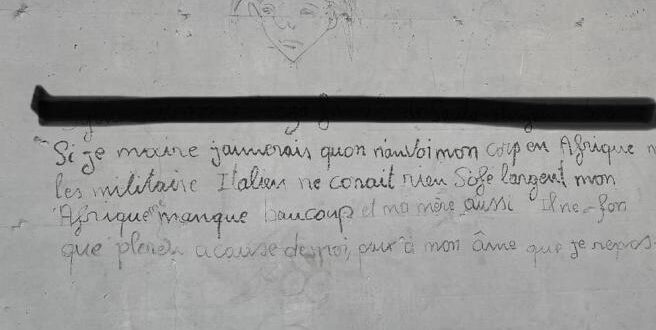 Si je maire jaumerais quon nanvoi mon corp en Afrique
les militaire Italien ne conait rien Sofe largent mon
Afrique me manque baucoup et ma mère aussi Il ne fon
que pleren acause de moi, paix à mon âme que je repos